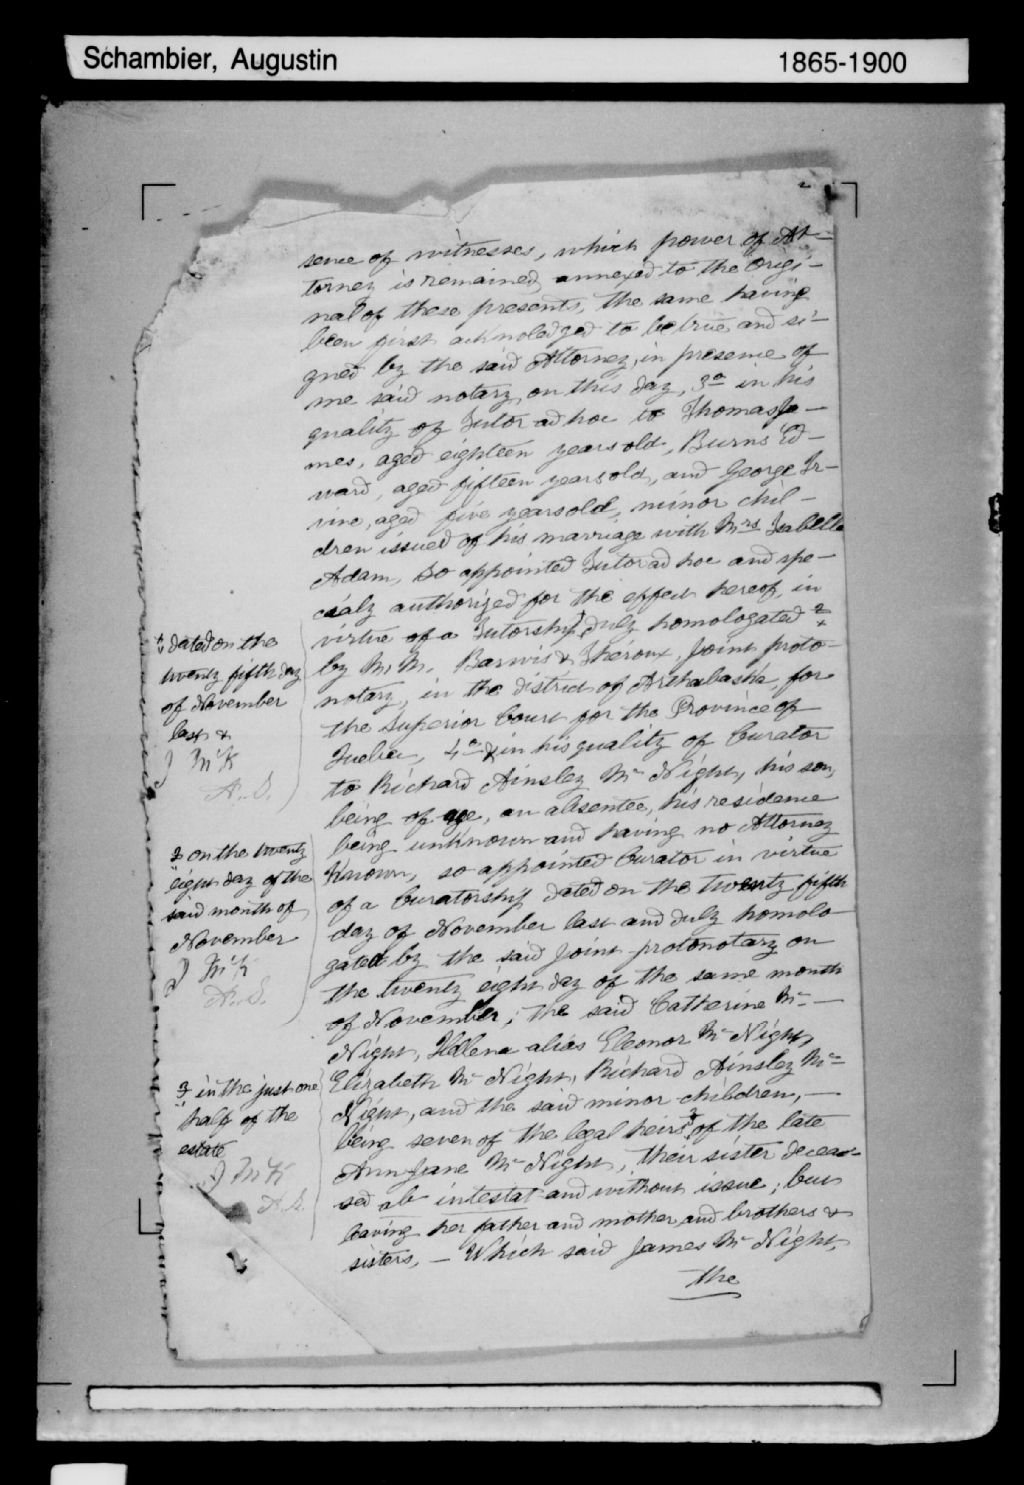 Schambier, Augustin
1865-1900
2
sence of witnesses, which power of At-
torney is remained annexed to the Origi-
nal of these presents, the same having
been first acknoledged to be true and si-
gned by the said Attorney, in presence of
me said notary on this day, 3o in his
quality of Tutor ad hoc to Thomas Ja-
mes, aged eighteen years old, Burns Ed-
ward, aged fifteen years old, and George Ir-
vine, aged five years old, minor chil-
dren issued of his marriage with Mrs Isabella
Adam, so appointed Tutor ad hoc and spe-
cialy authorized for the effect hereof, in
virtue of a Tutorship duly homologated
by M. M. Barwis & Theroux, joint proto-
notary, in the district of Arthabaska, for
the Superior Court for the Province of
Quebec, 4o & in his quality of Curator
to Richard Ainsley Mc Night, his son,
being of age, an absentee, his residence
being unknown and having no Attorney
known, so appointed Curator in virtue
of a Curatorship dated on the twenty fifth
day of November last and duly homolo-
gated by the said joint protonotary on
the twenty eight day of the same month
of November; the said Catherine Mc-
Night, Hellena alias Eleonor Mc Night,
Elizabeth Mc Night, Richard Ainsley Mc-
Night, and the said minor children, -
being seven of the legal heirs of the late
Ann Jane Mc Night, their sister decea-
sed ab intestat and without issue; but
leaving her father and mother and brothers &
sisters, - Which said James Mc Night,
the
dated on the
twenty fifth day
of November
last &
J McK
A. S.
on the twenty
eight day of the
said month of
November
J McK
A. S.
in the just one
half of the
estate
J McK
A. S.